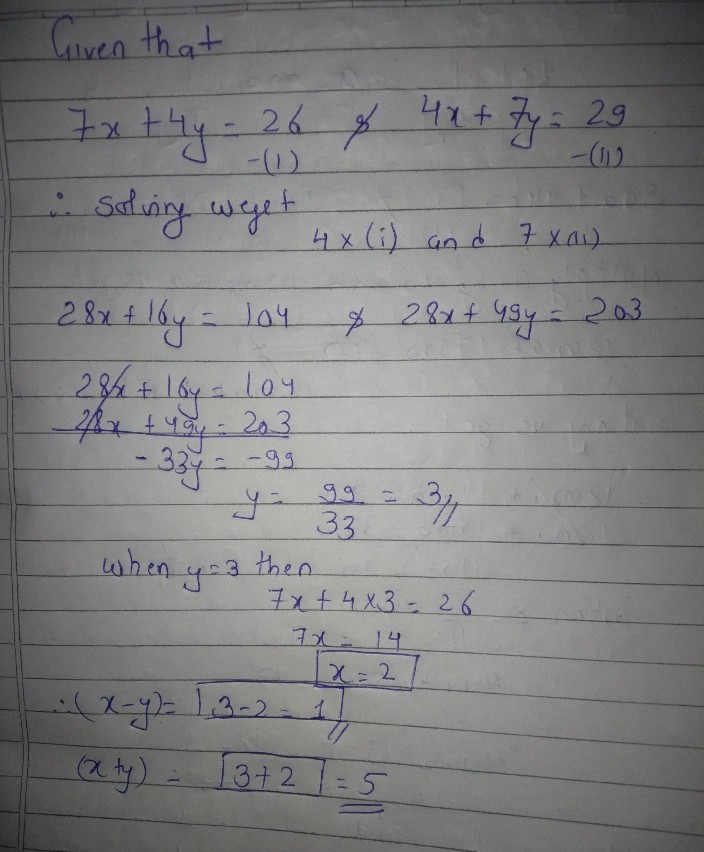 Given that
7x + 4y = 26 & 4x + 7y = 29
-(i) -(ii)
∴ solving we get
4 x (i) and 7 x (ii)
28x + 16y = 104 & 28x + 49y = 203
28x + 16y = 104
28x + 49y = 203
- 33y = -99
y = 99/33 = 3//
when y=3 then
7x + 4x3 = 26
7x = 14
x = 2
∴ (x-y) = 3-2 = 1//
(x+y) = 3+2 = 5